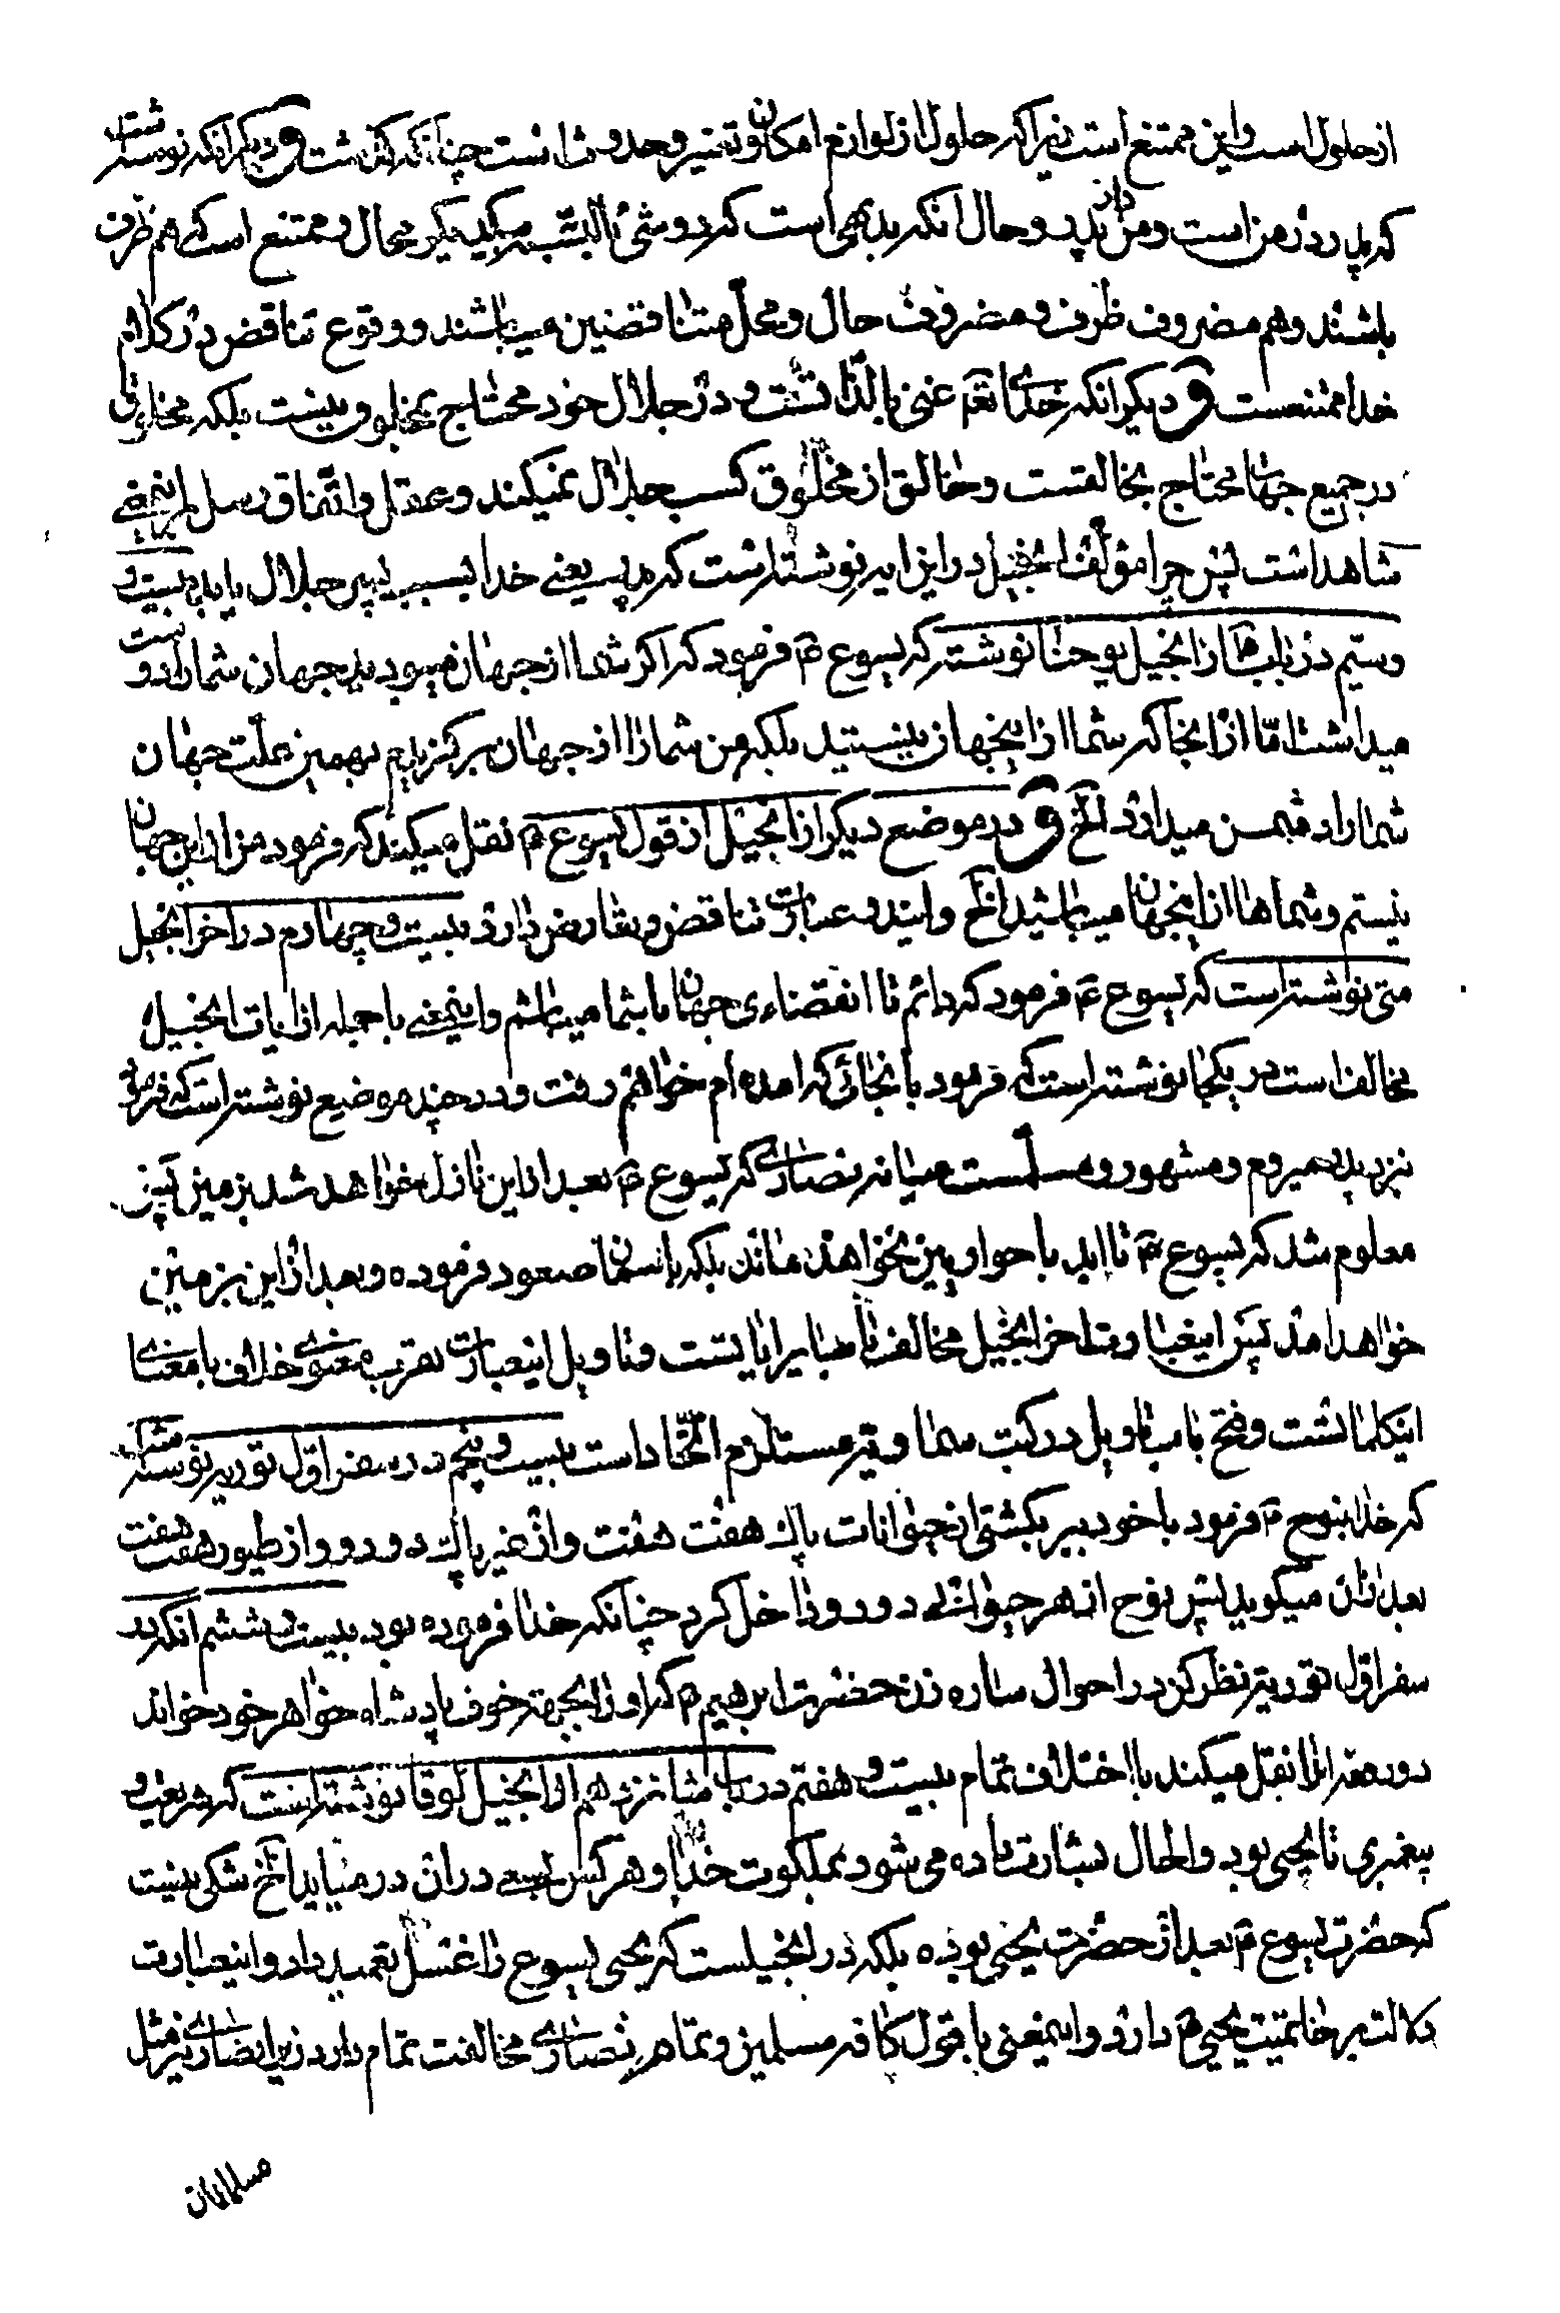 از حلول است و این ممتنع است زیرا که حلول از لوازم امکان و تغییر و حدوث است چنانکه گذشت و دیگر انکه نوشته است
که پدر در من است و من در پدر و حال انکه بدیهی است که دو شئ بالنسبه بیکدیگر محال و ممتنع است که هم ظرف
باشند و هم مضروف ظرف و مضروف حال و محل متناقضین میباشند و وقوع تناقض در کلام
خدا ممتنعست و دیگر انکه خدای تعم غنی بالذاتست و در جلال خود محتاج بمخلوق نیست بلکه مخلوق
در جمیع جهات محتاج بخالقست و خالق از مخلوق کسب جلال نمیکند و عقل و اتفاق رسل براینمعنی
شاهد است پس چرا مؤلف انجیل در این ایه نوشته است که پدر یعنی خدا بسبب پسر جلال یابد بیست و
وسیّم در باب ۱۵ از انجیل یوحنا نوشته که یسوع ع فرمود که اگر شما از جهان میبودید جهان شما را دوست
میداشت امّا از انجا که شما از اینجهان نیستید بلکه من شما را از جهان برگزیدم بهمین علت جهان
شما را دشمن میدارد الخ و در موضع دیگر از انجیل از قول یسوع ع نقل میکند که فرمود من از این جهان
نیستم و شماها از اینجهان میباشید الخ و ایندو عبارت تناقض و تعارض دارد بیست و چهارم در اخر انجیل
متی نوشته است که یسوع ع فرمود که دائم تا انقضاءی جهان با شما میباشم و اینمعنی با جمله از ایات انجیل
مخالف است در یکجا نوشته است که فرمود بانجائی که امده ام خواهم رفت و در چند موضع نوشته است که فرمود
نزد پدر میروم و مشهور و مسلمست میانه نصاری که یسوع ع بعد از این نازل خواهد شد بزمین پس
معلوم شد که یسوع ع تا ابد با حواریین نخواهد ماند بلکه باسمان صعود فرموده و بعد از این بزمین
خواهد امد پس اینعبارت اخر انجیل مخالف با سایر ایاتست و تاویل اینعبارت بقرب معنوی خلاف بامعنای
اینکلماتست و فتح باب تاویل در کتب سماویه مستلزم الحاد است بیست و پنجم در سفر اوّل توریة نوشته است
که خدا بنوح ع فرمود با خود ببر بکشتی از حیوانات پاک هفت هفت و از غیر پاک دو دو و از طیور هفت هفت
بعد از ان میگوید پس نوح از هر حیوانی دو دو داخل کرد چنانکه خدا فرموده بود بیست و ششم انکه در
سفر اوّل توریة نظر کن در احوال ساره زن حضرت ابرهیم ع که او را بجهة خوف پادشاه خواهر خود خواند
دو دفعه انرا نقل میکند با اختلاف تمام بیست و هفتم در باب شانزدهم از انجیل لوقا نوشته است که شریعت و
پیغمبری تا یحیی بود و الحال بشارت داده می شود بملکوت خدا و هر کس بسعی در ان در میاید الخ شکی نیست
که حضرت یسوع ع بعد از حضرت یحیی بوده بلکه در انجیلست که یحیی یسوع را غسل تعمید داد و اینعبارت
دلالت بر خاتمیت یحیی ع دارد و اینمعنی با قول کافه مسلمین و تمام نصاری مخالفت تمام دارد زیرا نصاری نیز مثل
مسلمانان